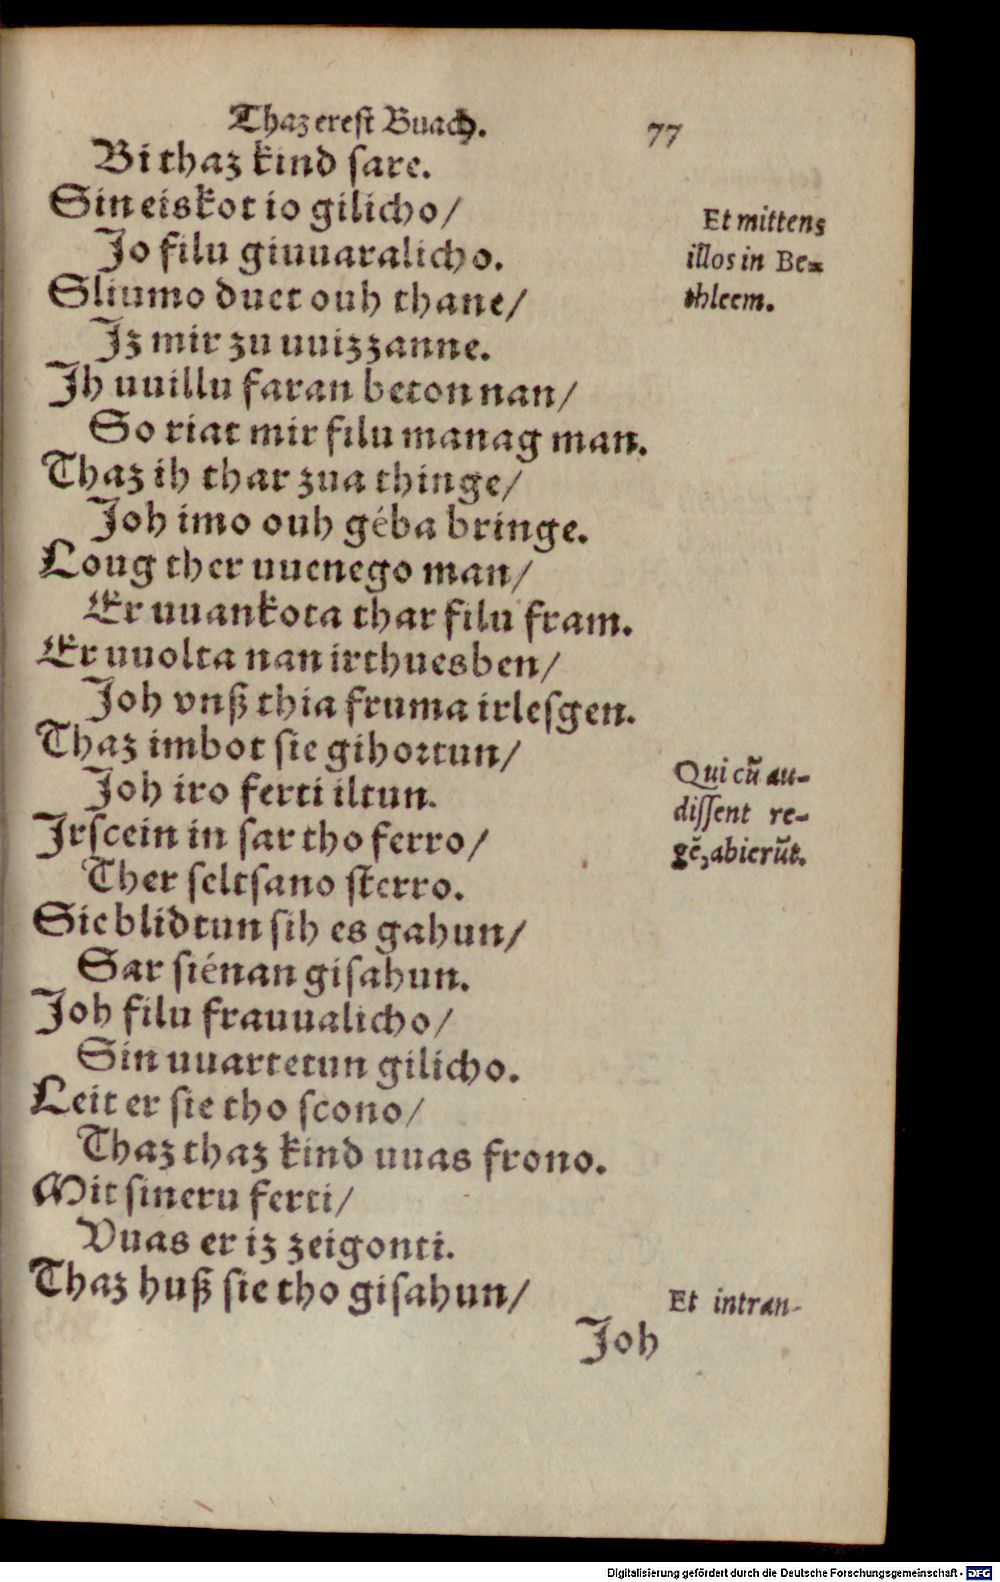 Thaz erest Buach. 77
Bi thaz kind sare.
Sin eiskot io gilicho/
Jo filu giuuaralicho.
Et mittens
illos in Be=
thleem.
Sliumo duet ouh thane/
Jz mir zu uuizzanne.
Jh uuillu faran beton nan/
So riat mir filu manag man.
Thaz ih thar zua thinge/
Joh imo ouh géba bringe.
Loug ther uuenego man/
Er uuankota thar filu fram.
Er uuolta nan irthuesben/
Joh vnß thia fruma irlesgen.
Thaz imbot sie gihortun/
Joh iro ferti iltun.
Qui cũ au-
dissent re-
gẽ, abierũt.
Jrscein in sar tho ferro/
Ther seltsano sterro.
Sie blidtun sih es gahun/
Sar sié nan gisahun.
Joh filu frauualicho/
Sin uuartetun gilicho.
Leit er sie tho scono/
Thaz thaz kind uuas frono.
Mit sineru ferti/
Vuas er iz zeigonti.
Thaz huß sie tho gisahun/
Et intran-
Joh
Digitalisierung gefördert durch die Deutsche Forschungsgemeinschaft - DFG